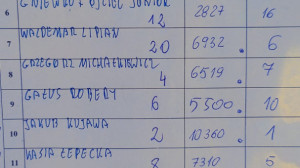 12 2827 16
7 WALDEMAR LIPIAN
20 6932. 6
8 GRZEGORZ MICHAŁKIEWICZ
4 6519. 7
9 GAŁUS ROBERT
6 5500. 10
10 JAKUB KUJAWA
2 10360. 1
11 WASIA ŁEPECKA
8 7310 5